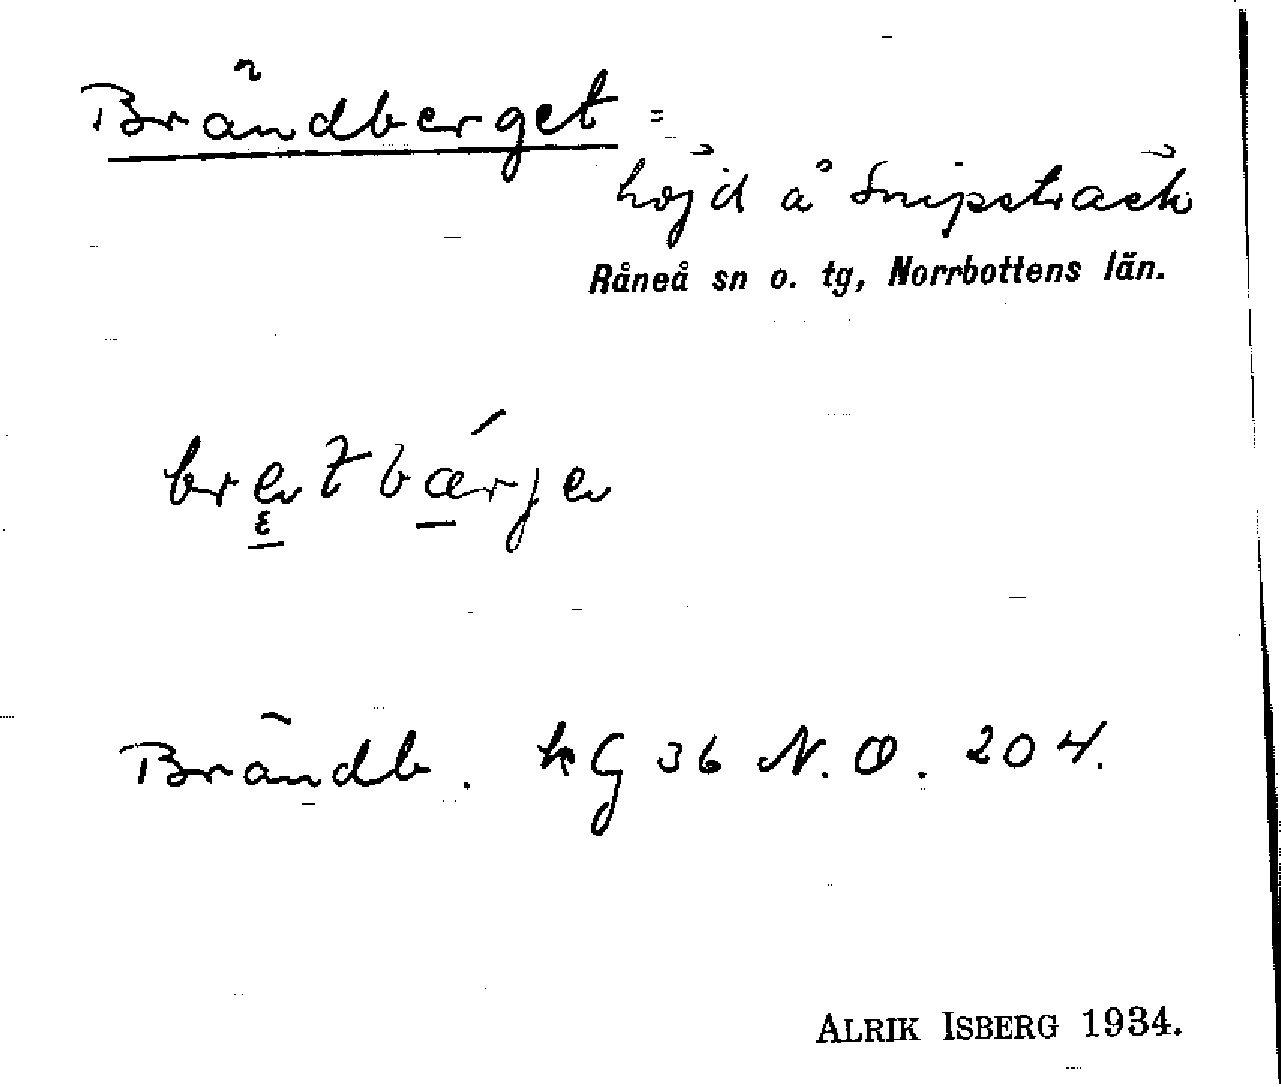 Brändberget =
höjd å Snipeträsk
Råneå sn o. tg, Norrbottens län.
Brändb. kG 36 N.O. 204.
ALRIK ISBERG 1934.